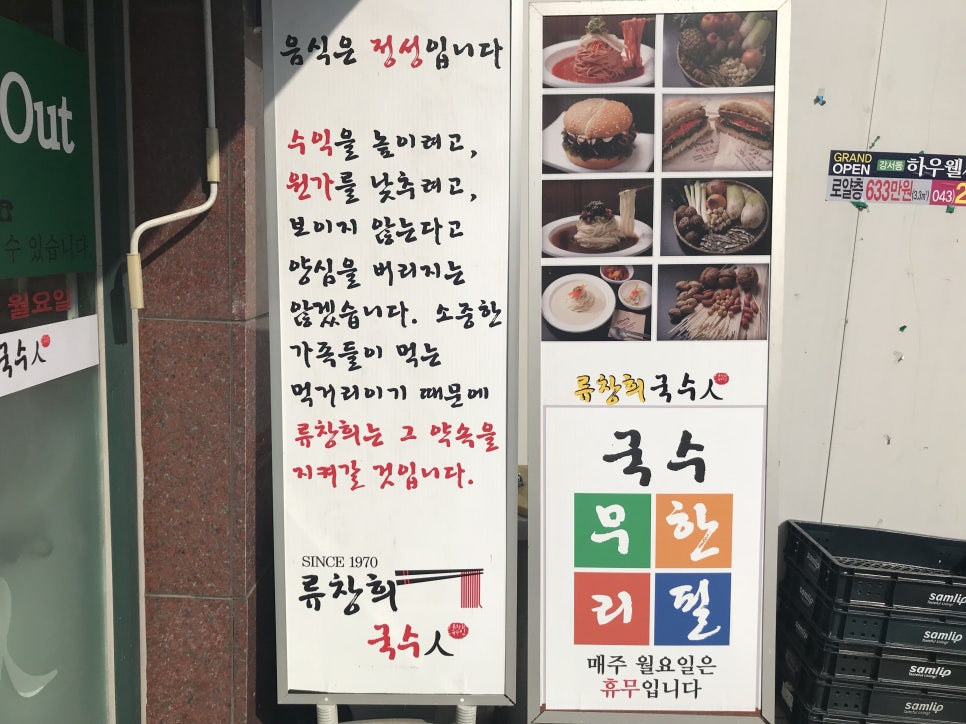 Out
수 있습니다.
월요일
국수人
음식은 정성입니다
수익을 높이려고,
원가를 낮추려고,
보이지 않는다고
양심을 버리지는
않겠습니다. 소중한
가족들이 먹는
먹거리이기 때문에
류창희는 그 약속을
지켜갈 것입니다.
SINCE 1970
류창희
국수人
류창희 국수人
국수
무한
리필
매주 월요일은
휴무입니다
GRAND
OPEN
강서동
하우웰
로얄층 633만원(3.3㎡) (043)2
samlip
samlip
samlip
samlip